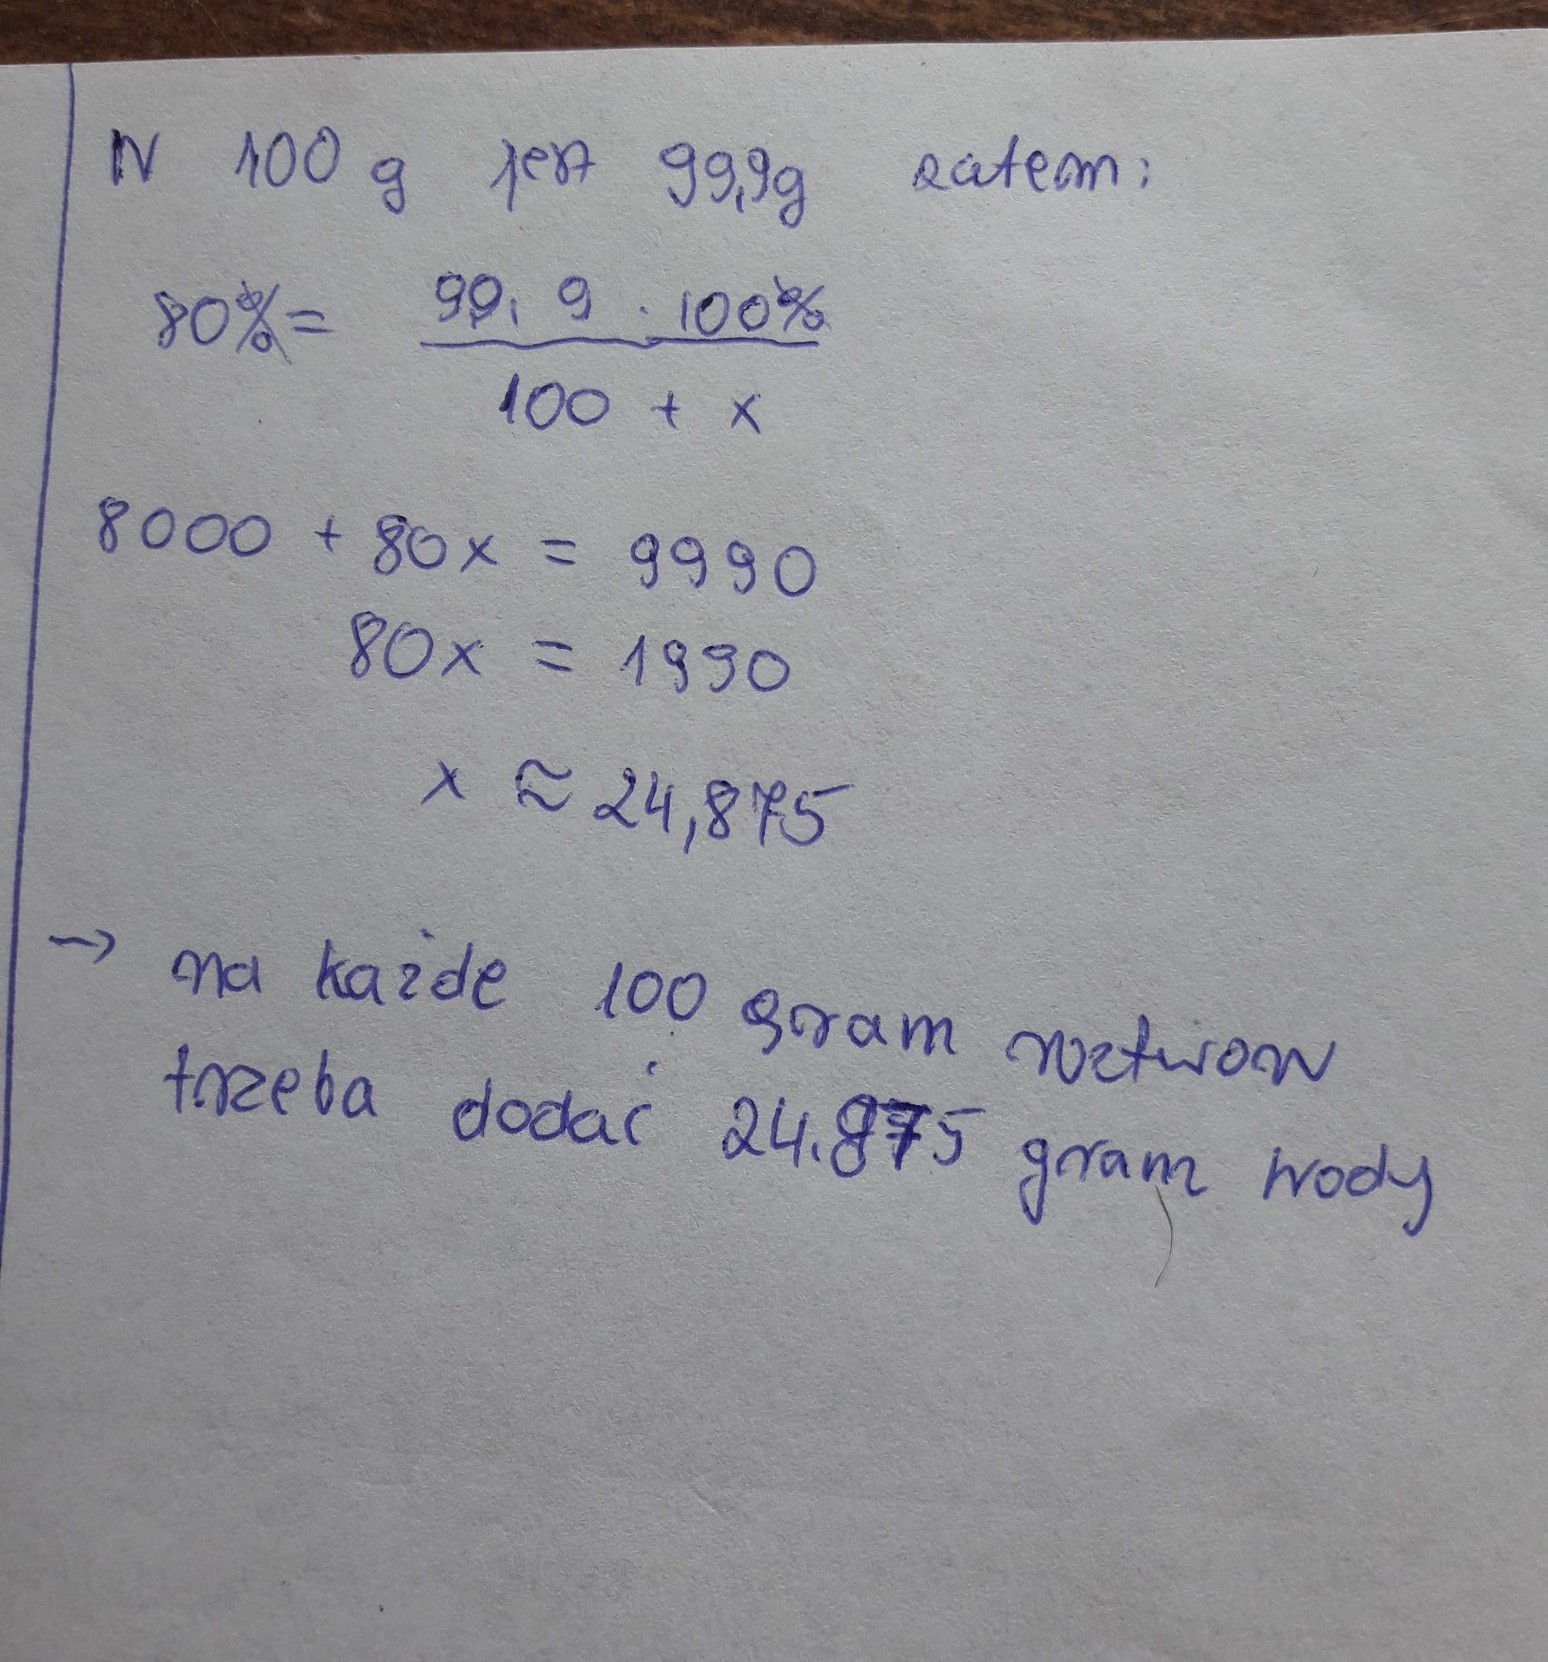 W 100 g jest 99,9g zatem:
80% = 99,9 · 100%
100 + x
8000 + 80x = 9990
80x = 1990
x ≈ 24,875
→ na każde 100 gram roztworu
trzeba dodać 24.875 gram wody